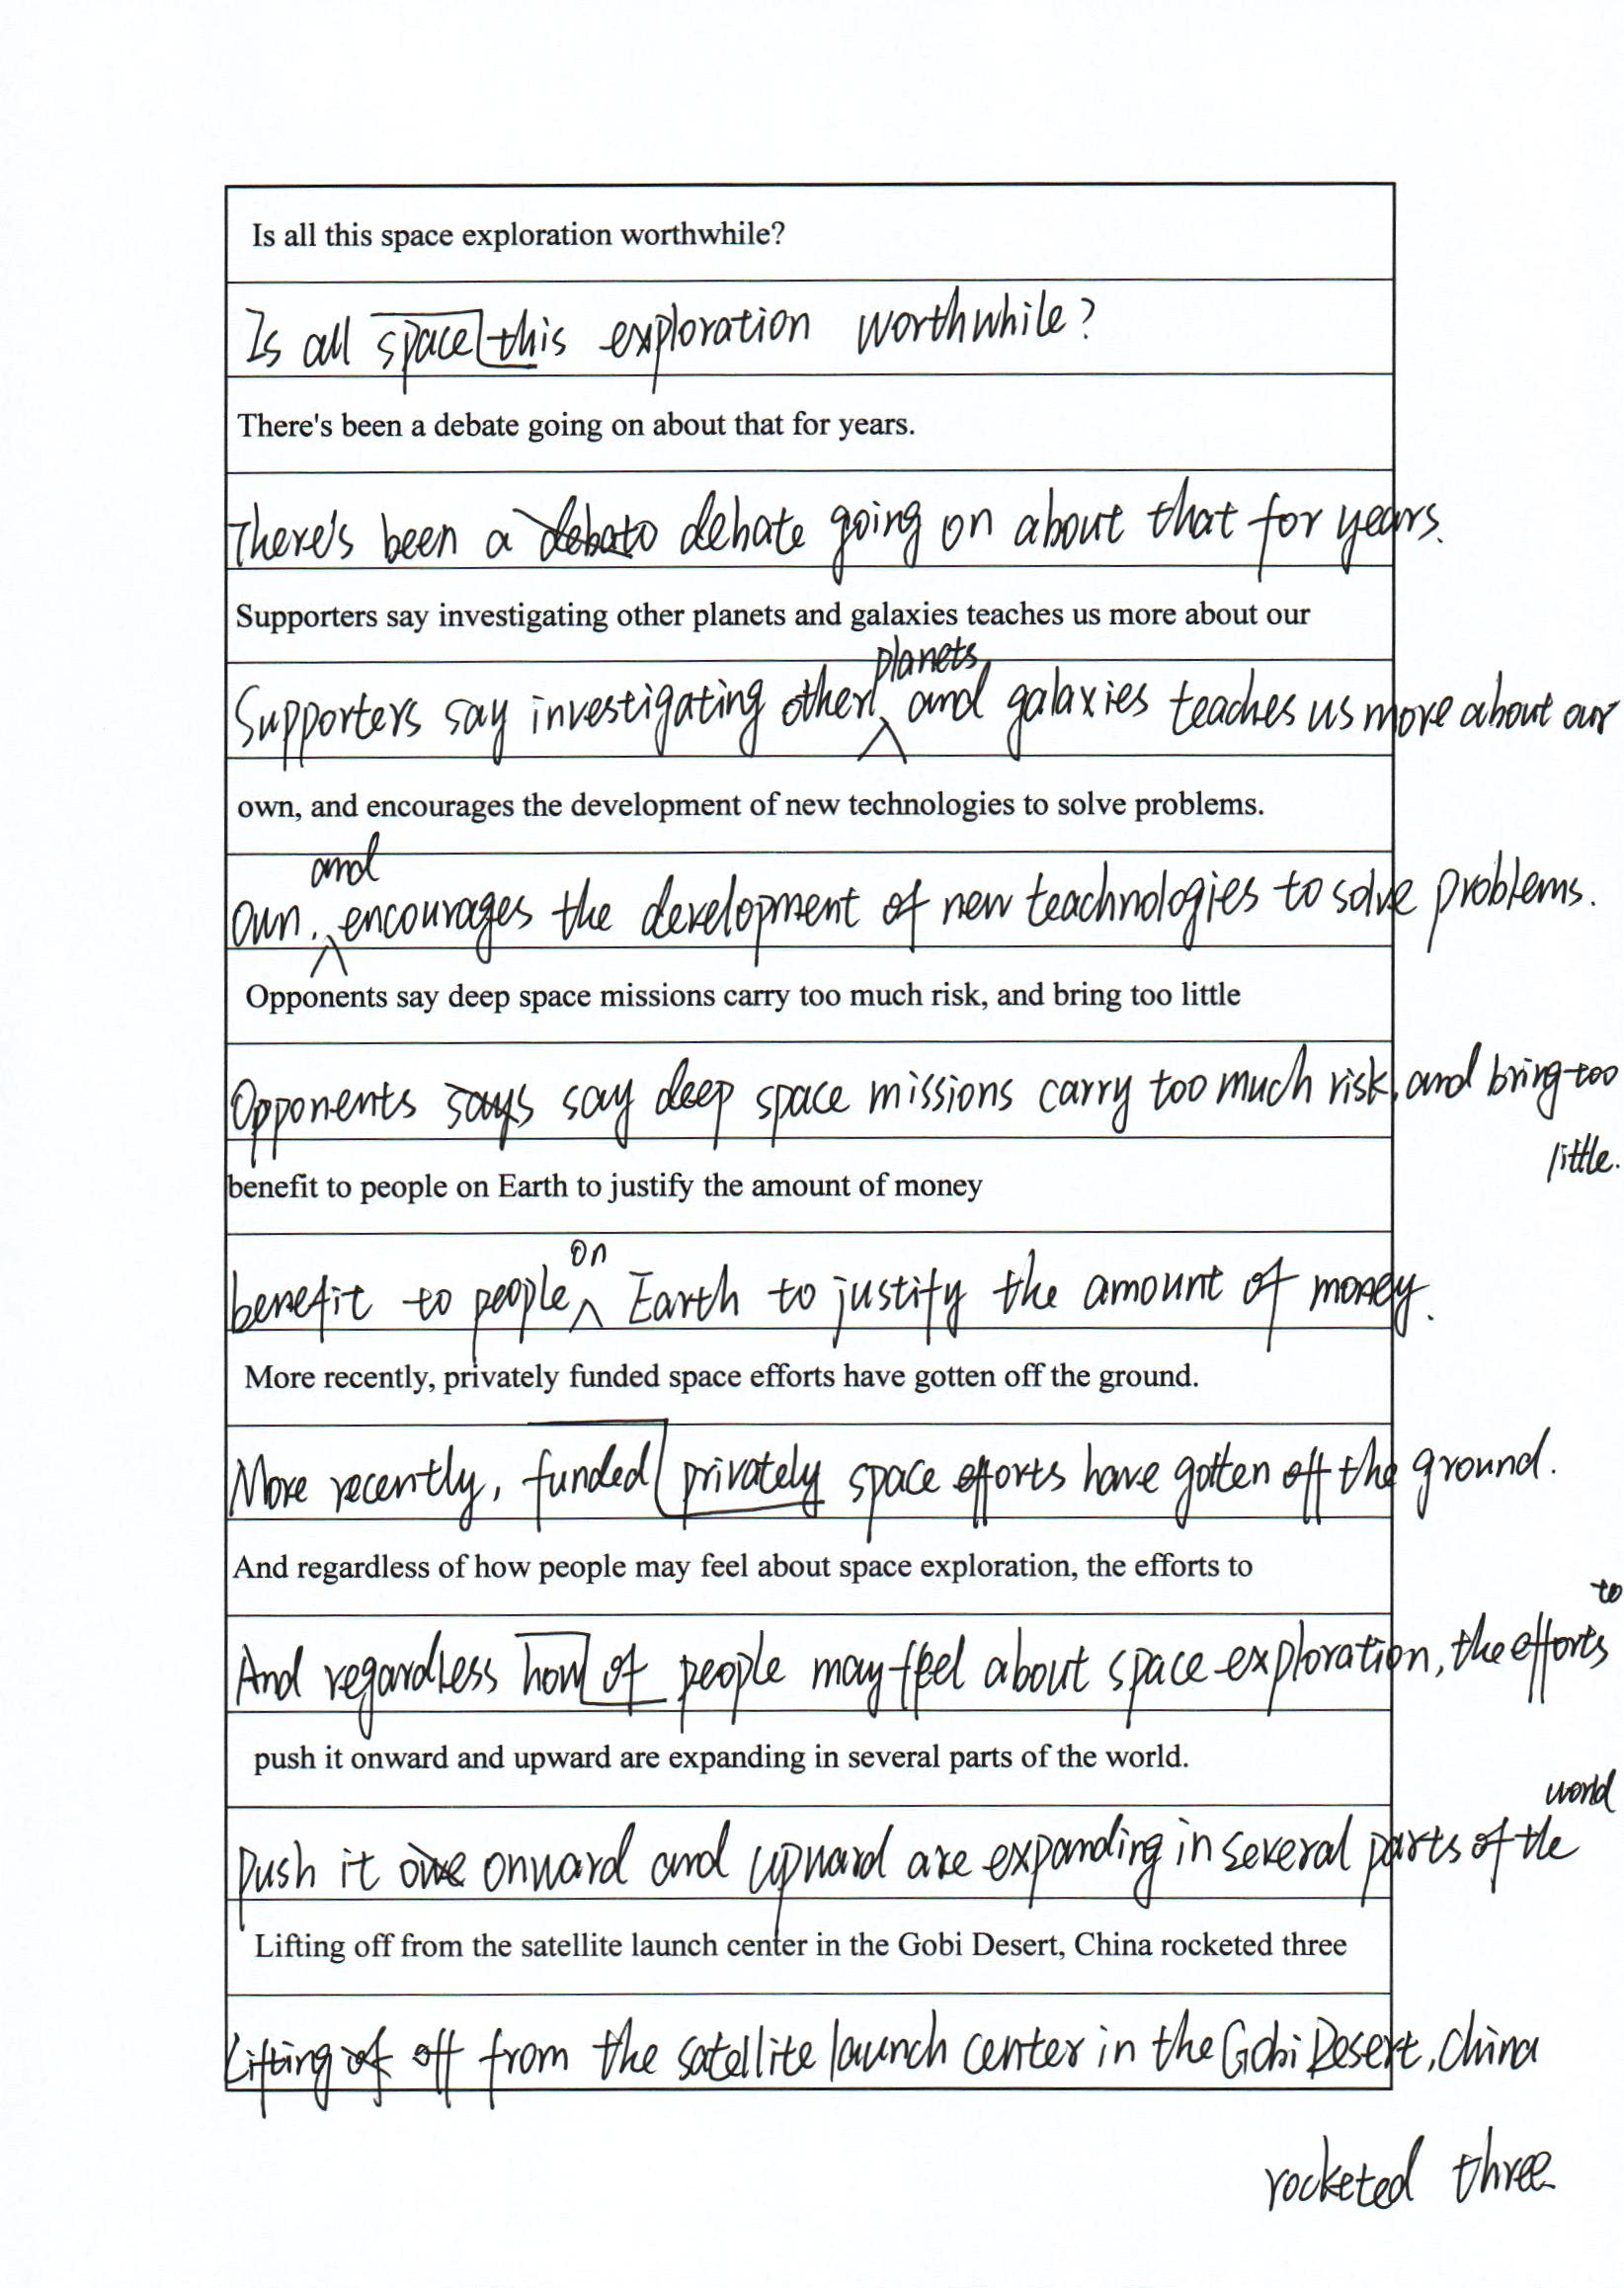 Is all this space exploration worthwhile?
Is all space this exploration worthwhile?
There's been a debate going on about that for years.
There's been a debate going on about that for years.
Supporters say investigating other planets and galaxies teaches us more about our
Supporters say investigating other planets and galaxies teaches us more about our
own, and encourages the development of new technologies to solve problems.
own, and encourages the development of new teachnologies to solve problems.
Opponents say deep space missions carry too much risk, and bring too little
Opponents say deep space missions carry too much risk, and bring too
little.
benefit to people on Earth to justify the amount of money
benefit to people on Earth to justify the amount of money.
More recently, privately funded space efforts have gotten off the ground.
More recently, funded privately space efforts have gotten off the ground.
And regardless of how people may feel about space exploration, the efforts to
And regardless how of people may feel about space exploration, the efforts to
push it onward and upward are expanding in several parts of the world.
push it onward and upward are expanding in several parts of the world
Lifting off from the satellite launch center in the Gobi Desert, China rocketed three
Lifting off from the satellite launch center in the Gobi Desert, China
rocketed three